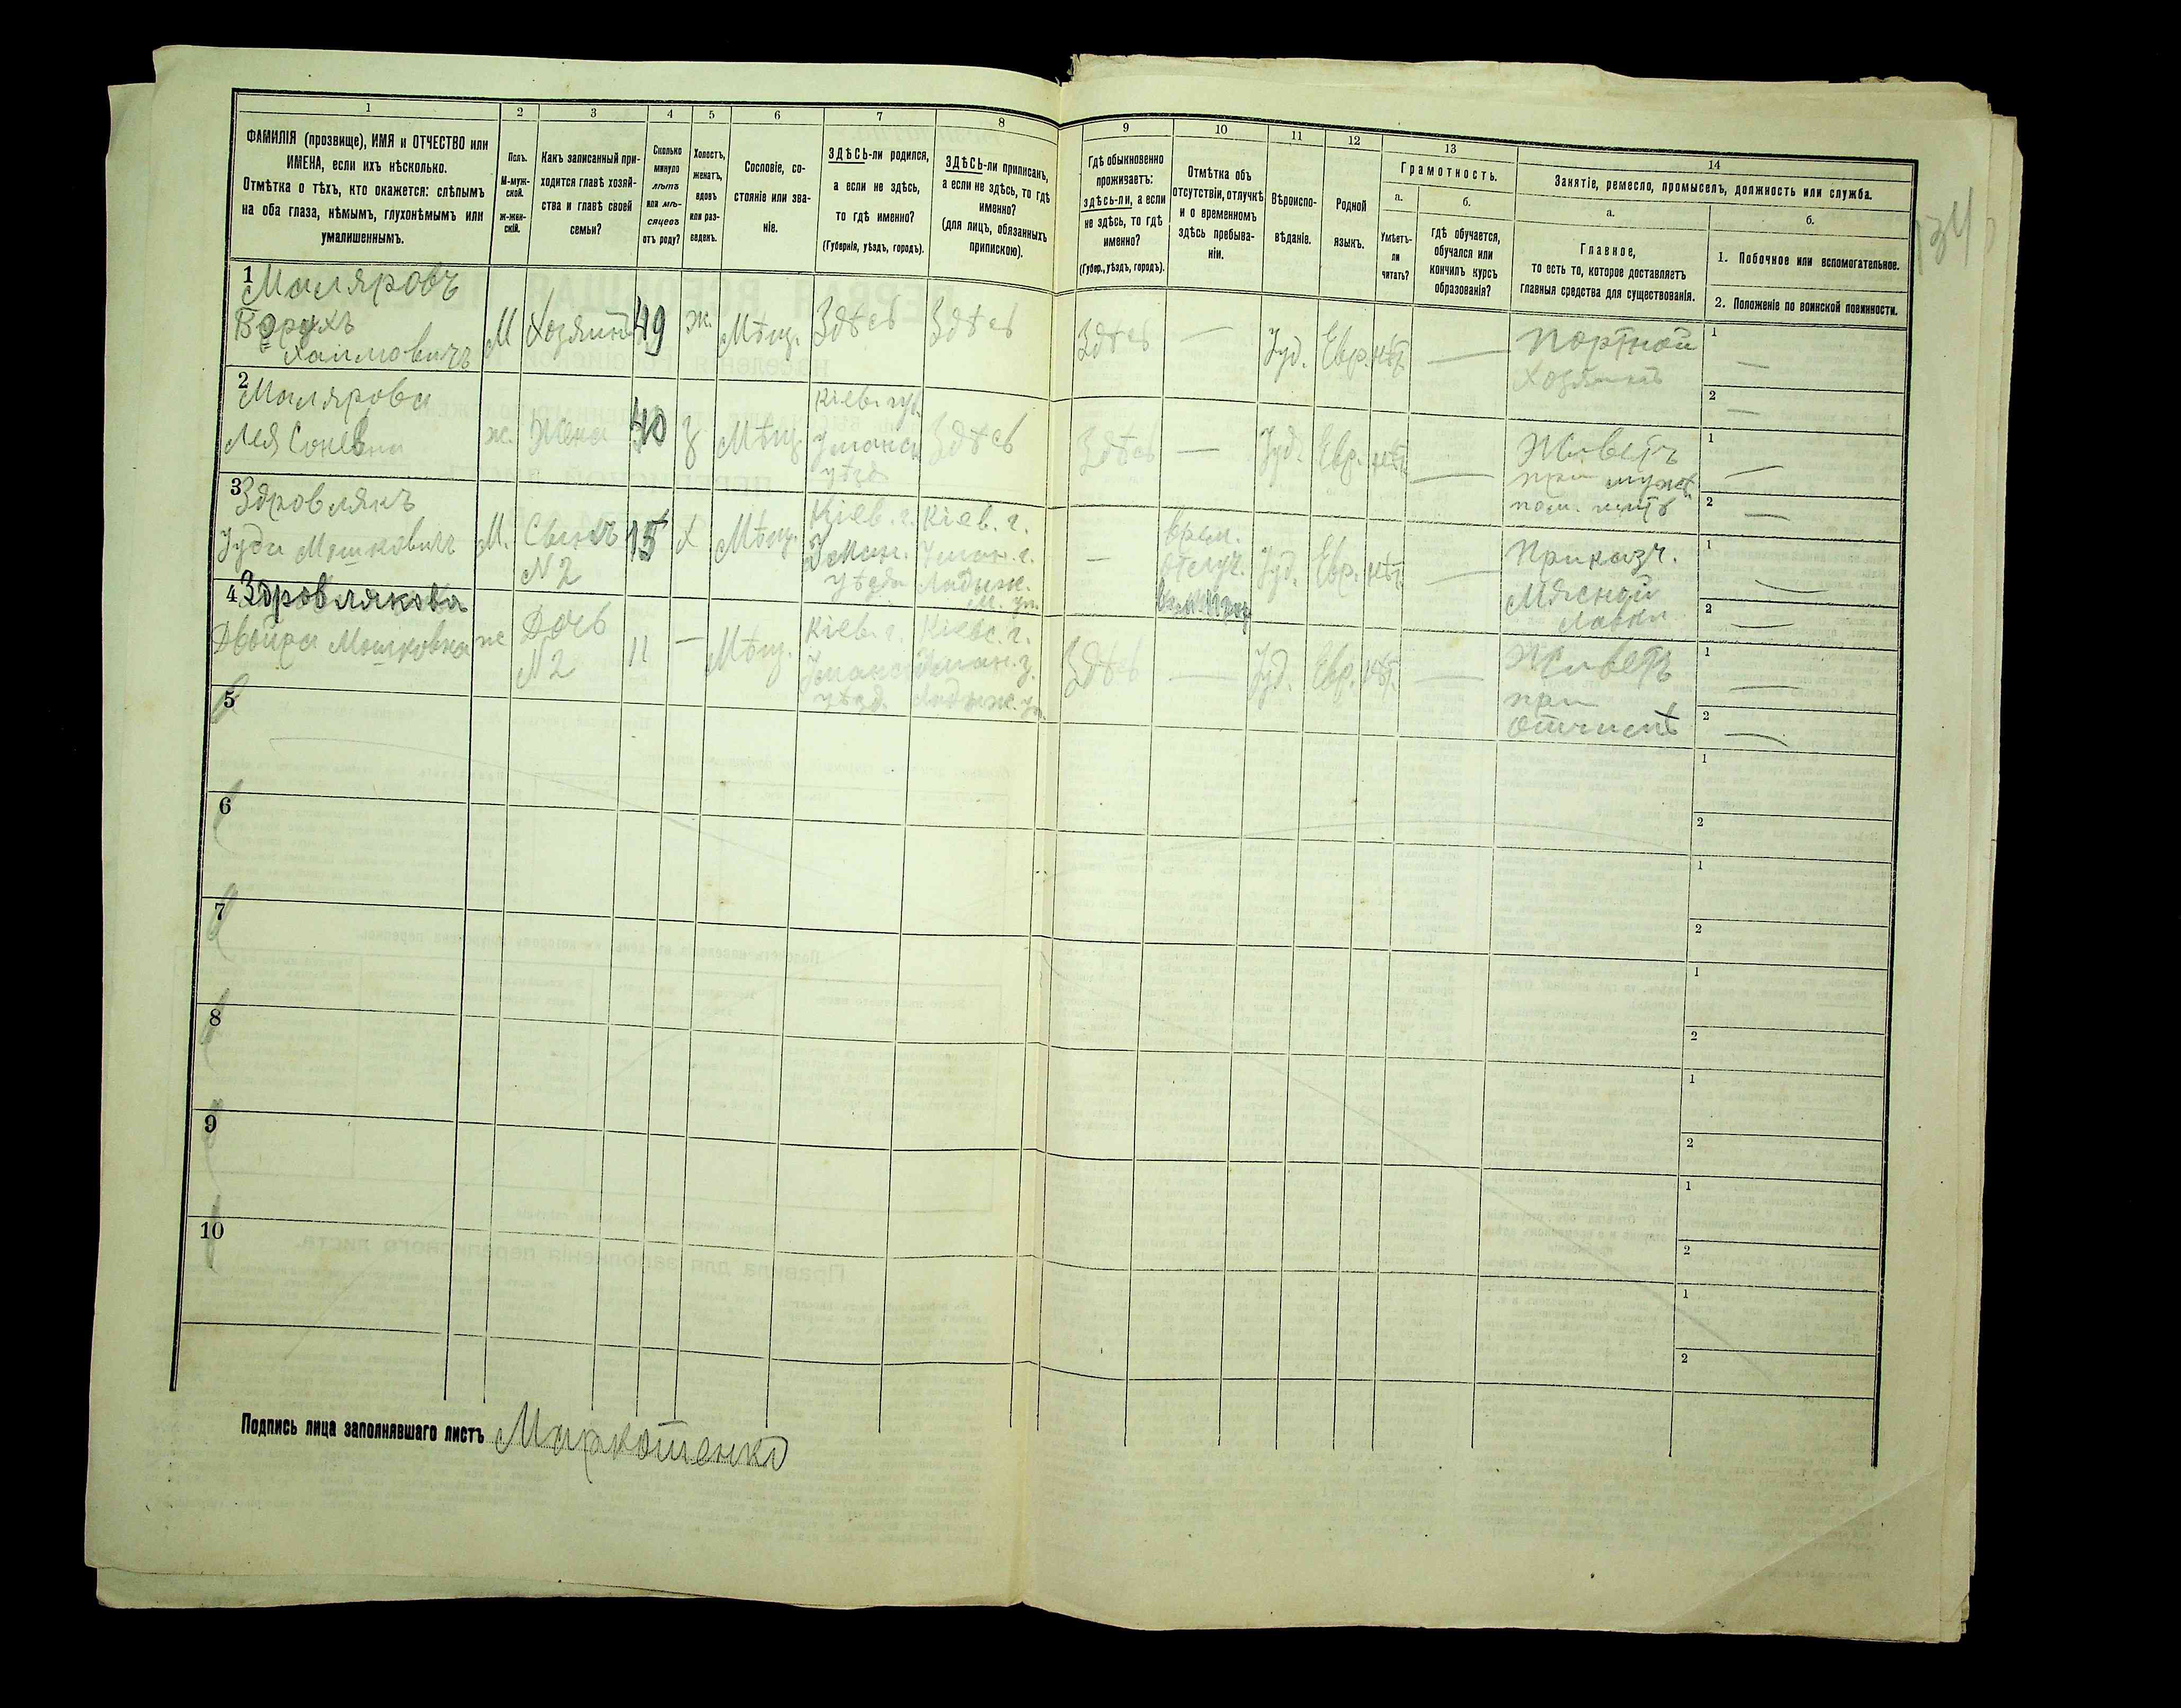 1
ФАМИЛІЯ (прозвище), ИМЯ и ОТЧЕСТВО или
ИМЕНА, если ихъ нѣсколько.
Отмѣтка о тѣхъ, кто окажется: слѣпымъ
на оба глаза, нѣмымъ, глухонѣмымъ или
умалишеннымъ.
2
Полъ.
М-муж-
ской.
Ж-жен-
скій.
3
Какъ записанный при-
ходится главѣ хозяй-
ства и главѣ своей
семьи?
4
Сколько
минуло
лѣтъ
или мѣ-
сяцевъ
отъ роду?
5
Холостъ,
женатъ,
вдовъ
или раз-
веденъ.
6
Сословіе, со-
стояніе или зва-
ніе.
7
ЗДѢСЬ-ли родился,
а если не здѣсь,
то гдѣ именно?
(Губернія, уѣздъ, городъ).
8
ЗДѢСЬ-ли приписанъ,
а если не здѣсь, то гдѣ
именно?
(для лицъ, обязанныхъ
припискою).
9
Гдѣ обыкновенно
проживаетъ:
здѣсь-ли, а если
не здѣсь, то гдѣ
именно?
(Губер., уѣздъ, городъ).
10
Отмѣтка объ
отсутствіи, отлучкѣ
и о временномъ
здѣсь пребыва-
ніи.
11
Вѣроиспо-
вѣданіе.
12
Родной
языкъ.
13
Грамотность.
а.
Умѣетъ-
ли
читать?
б.
гдѣ обучается,
обучался или
кончилъ курсъ
образованія?
14
Занятіе, ремесло, промыселъ, должность или служба.
а.
Главное,
то есть то, которое доставляетъ
главныя средства для существованія.
б.
1. Побочное или вспомогательное.
2. Положеніе по воинской повинности.
134
1
Маляровъ
Борухъ
Хаимовичъ
М
Хозяинъ
49
ж.
Мѣщ.
Здѣсь
Здѣсь
Здѣсь
—
Іуд.
Евр.
нѣт
—
Портной
Хозяинъ
1
—
2
—
2
Малярова
Лея
ж.
Жена
40
З
Мѣщ.
Кіев. губ.
Уманск
уѣзд
Здѣсь
Здѣсь
—
Іуд.
Евр.
нѣт
—
Живетъ
при мужѣ
1
—
2
—
3
Здровлякъ
Іуда Мошковичъ
М.
Сынъ
N2
15
Х
Мѣщ.
Кіев. г.
Уман.
уѣзда
Кіев. г.
Ладыж.
—
врем.
отлуч.
Іуд.
Евр.
нѣт
—
Приказч.
Мясной
лавки
1
—
2
—
4
Здровлякова
Двойра Мошковна
ж
Дочь
N2
11
—
Мѣщ.
Кіев. г.
Уманс
уѣзд.
Кіевс. г.
Уман. у.
Ладыж.
Здѣсь
—
Іуд.
Евр.
нѣт.
—
Живетъ
при
отчимѣ
1
—
2
—
5
1
2
6
1
2
7
1
2
8
1
2
9
1
2
10
1
2
Подпись лица заполнявшаго листъ Маркотенко